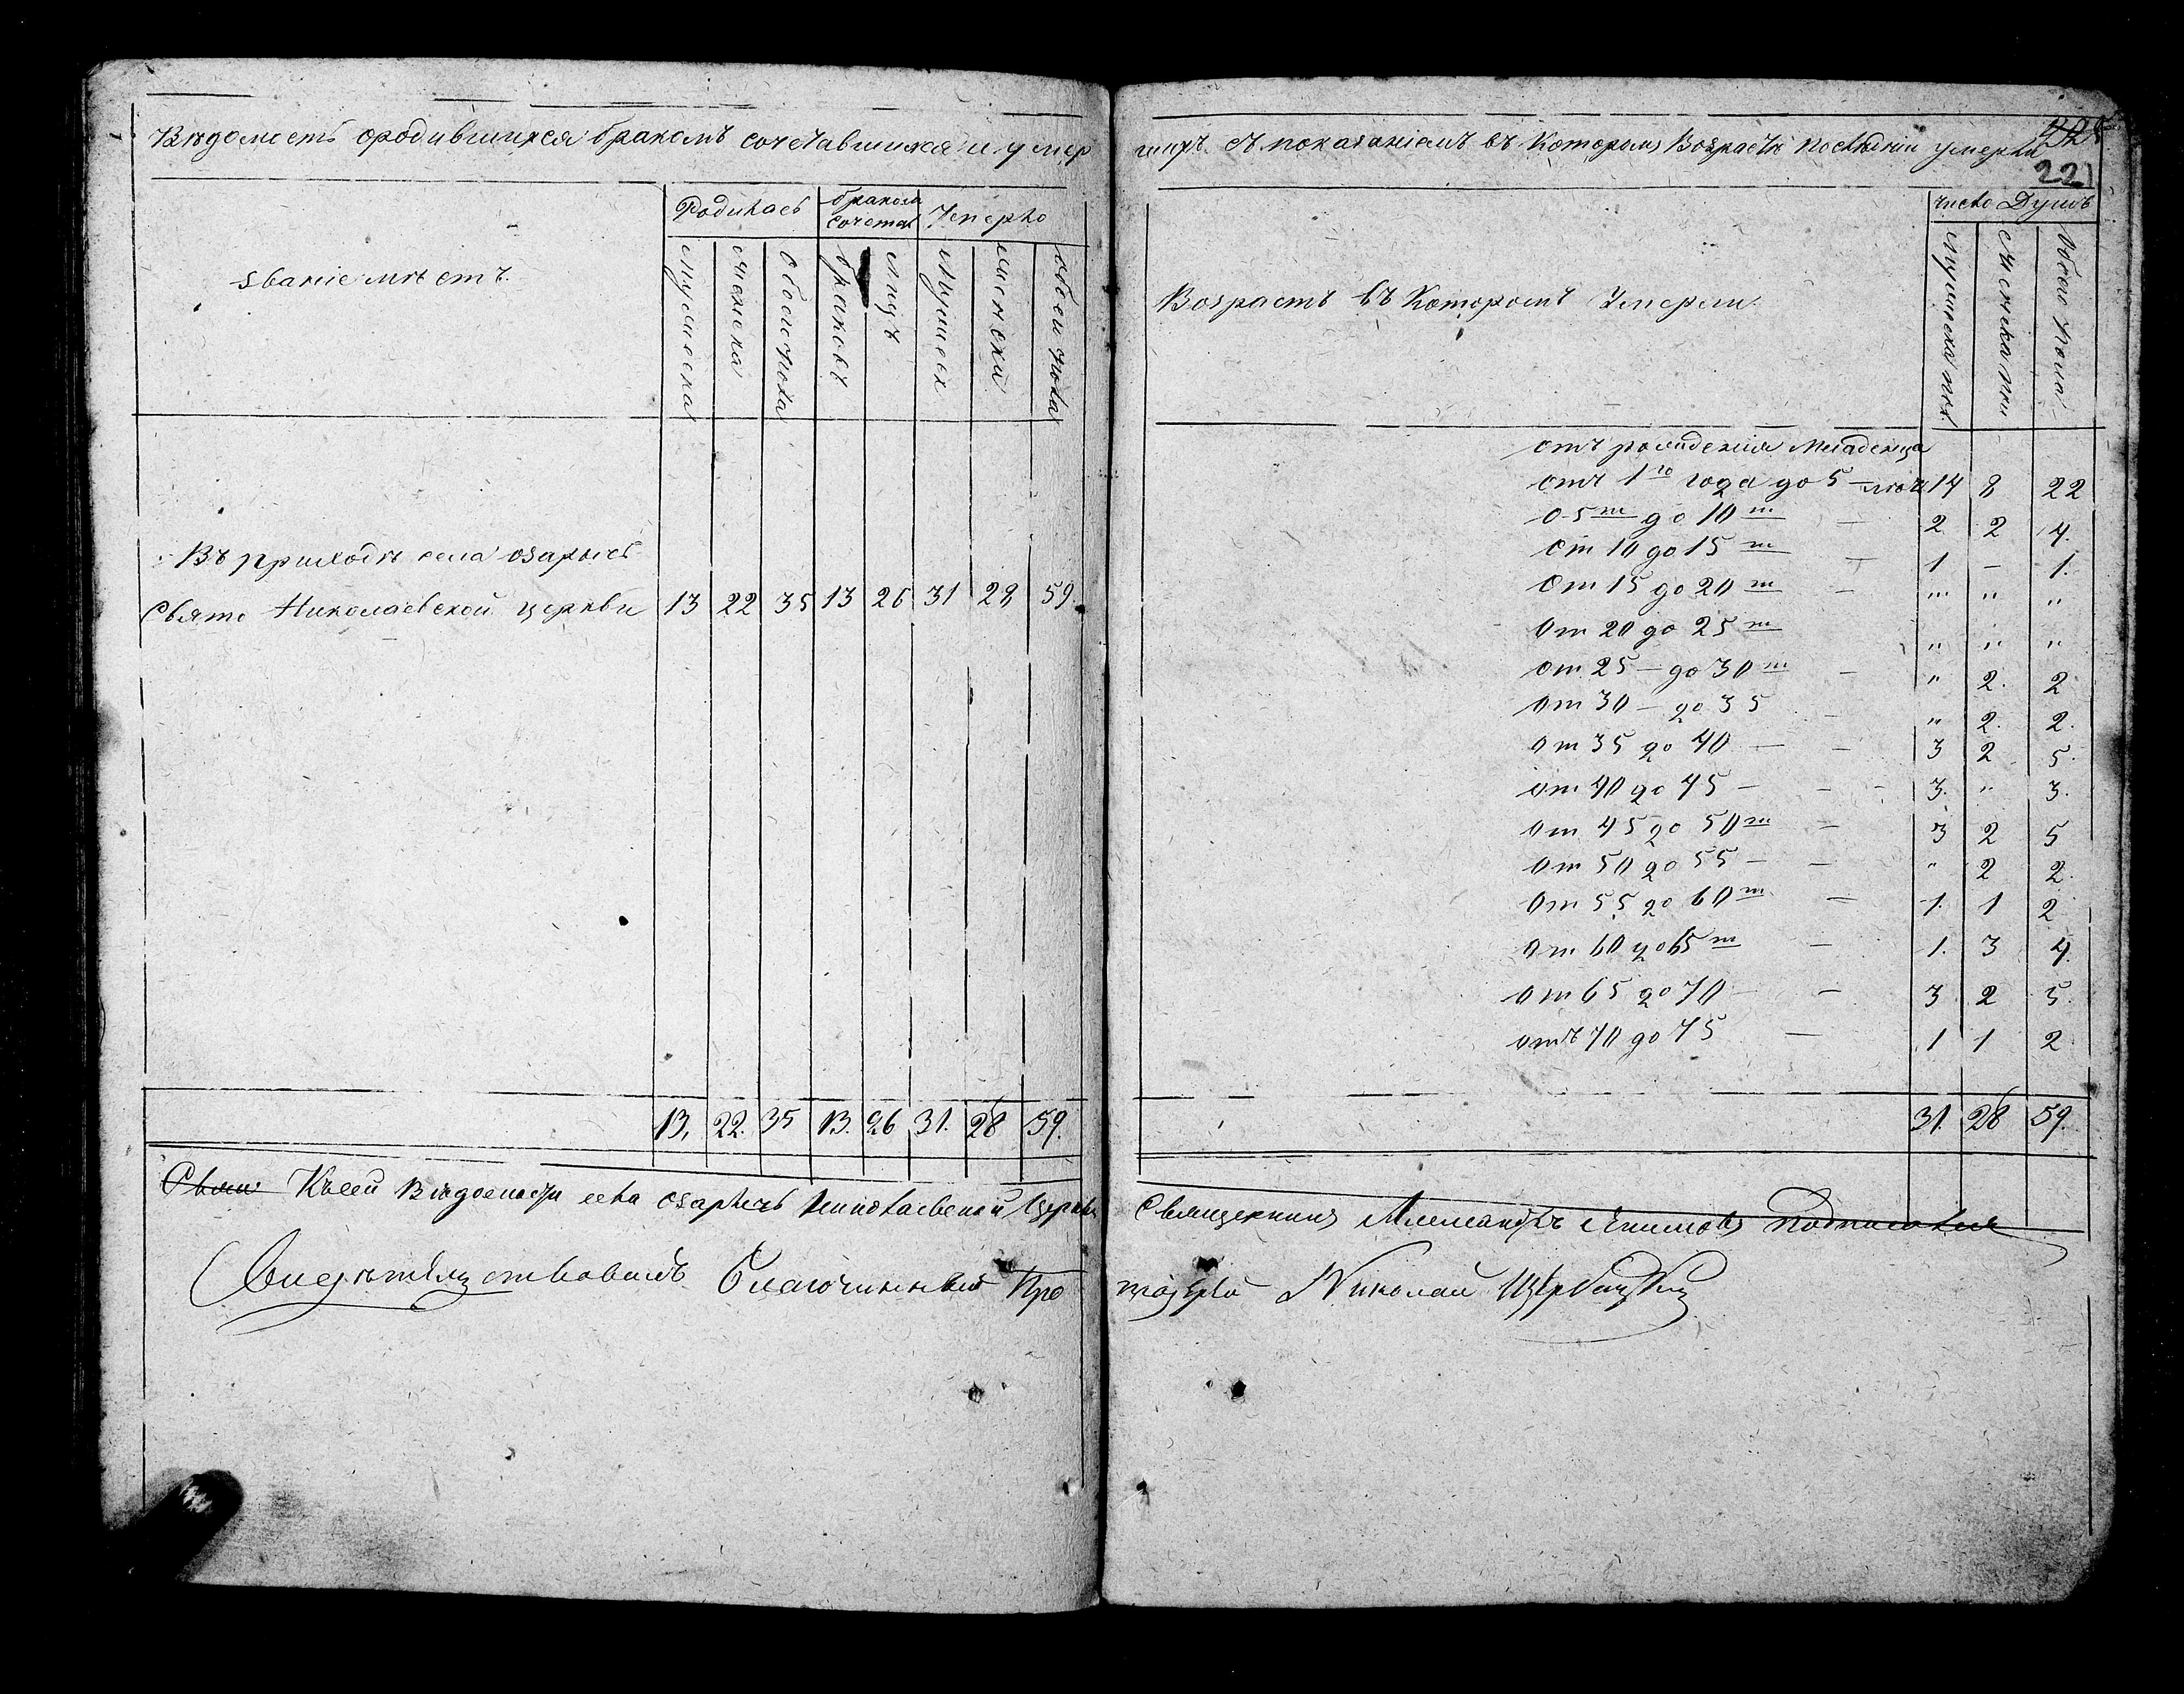 Вѣдомость ородившихся бракомъ сочетавшихся и умер
Званіе мѣстъ.
Родилось
бракомъ сочетал
Умерло
Мужеска
Женска
Обоего пола
браковъ
Лицъ
Мужеск
женска
обоего пола
Въ приходѣ села озаричь
Свято Николаевской церкви 13 22 35 13 26 31 28 59.
13. 22. 35 13. 26 31. 28 59.
Къ сей Вѣдомости села озаричь Николаевской Церкви
Свидѣтельствовалъ Благочинный Про
шихъ съ показаніемъ въ Которомъ Возрастѣ последніи умерли
221
Возрастъ въ Которомъ Умерли.
число Душъ
Мужеска пол.
Женска пол
Обоего пола
отъ рожденія Младенца
отъ 1го года до 5 – лѣт 14 8 22
О 5 т до 10 т – 2 2 4.
От 10 до 15 т – 1 – 1.
От 15 до 20 т – " " "
От 20 до 25 т " " "
От 25 – до 30 т – " 2. 2
От 30 – до 35 – " 2. 2.
От 35 до 40 – – 3 2 5.
От 40 до 45 – – – 3. " 3.
От 45 до 50 т – 3 2 5
От 50 до 55 – – " 2 2.
От 55 до 60 т – 1. 1 2
От 60 до 65 т – 1. 3 4.
От 65 до 70 – – 3 2 5.
отъ 70 до 75 – 1 1 2
31. 28 59.
Священникъ Александръ подписался
тоіерей Николай